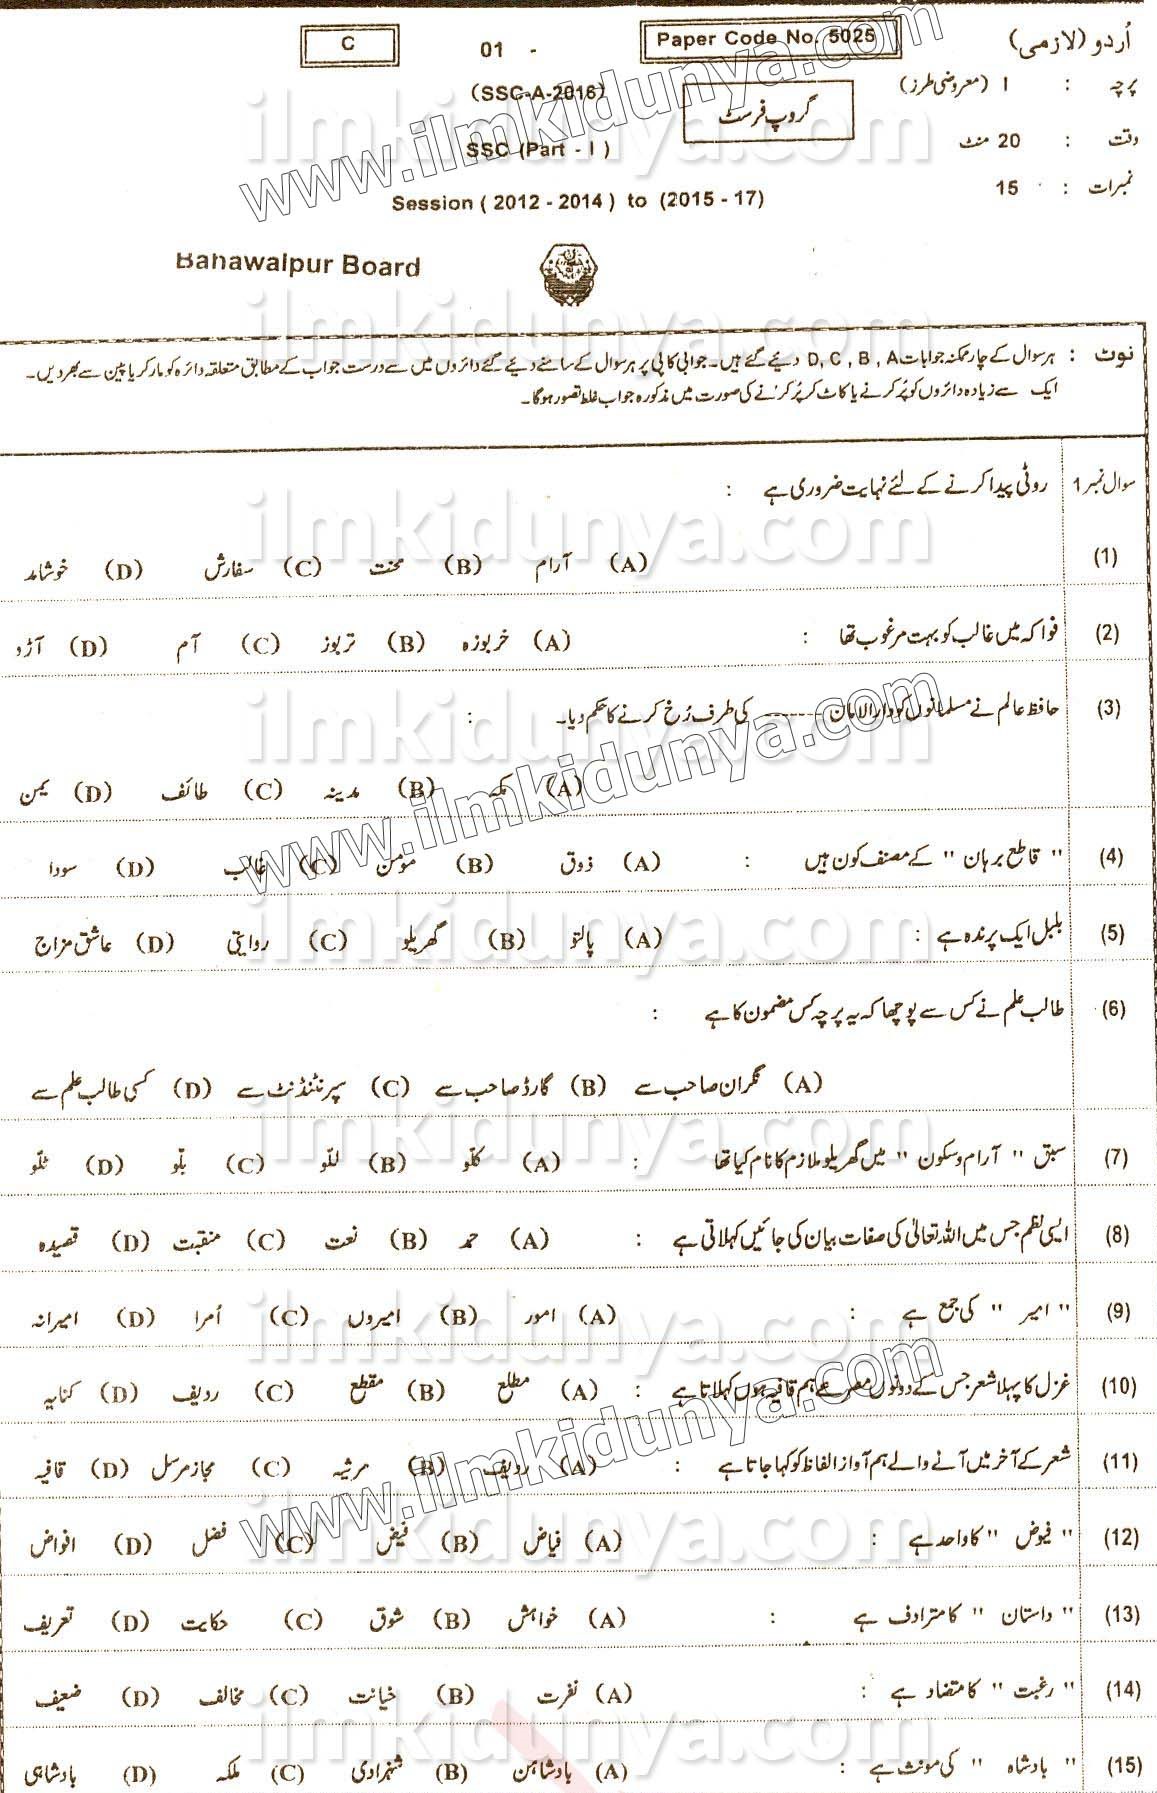 اُردو (لازمی)
Paper Code No. 5025
01 -
C
پرچہ : I (معروضی طرز)
گروپ فرسٹ
(SSC-A-2016)
وقت : 20 منٹ
SSC (Part - I)
نمبرات : 15
Session (2012 - 2014) to (2015 - 17)
Bahawalpur Board
نوٹ : ہر سوال کے چار ممکنہ جوابات D, C, B, A دیئے گئے ہیں۔ جوابی کاپی پر ہر سوال کے سامنے دیئے گئے دائروں میں سے درست جواب کے مطابق متعلقہ دائرہ کو مارکر یا پین سے بھر دیں۔
ایک سے زیادہ دائروں کو پُر کرنے یا کاٹ کر پُر کرنے کی صورت میں مذکورہ جواب غلط تصور ہوگا۔
سوال نمبر 1 روٹی پیدا کرنے کے لئے نہایت ضروری ہے :
(1) (A) آرام (B) محنت (C) سفارش (D) خوشامد
(2) فواکہ میں غالب کو بہت مرغوب تھا : (A) خربوزہ (B) تربوز (C) آم (D) آڑو
(3) حافظ عالم نے مسلمانوں کو دارالامان ------ کی طرف رُخ کرنے کا حکم دیا۔ :
(A) مکہ (B) مدینہ (C) طائف (D) یمن
(4) " قاطع برہان " کے مصنف کون ہیں : (A) ذوق (B) مؤمن (C) غالب (D) سودا
(5) بلبل ایک پرندہ ہے : (A) پالتو (B) گھریلو (C) روایتی (D) عاشق مزاج
(6) طالب علم نے کس سے پوچھا کہ یہ پرچہ کس مضمون کا ہے :
(A) نگران صاحب سے (B) گارڈ صاحب سے (C) سپرنٹنڈنٹ سے (D) کسی طالب علم سے
(7) سبق " آرام و سکون " میں گھریلو ملازم کا نام کیا تھا : (A) کلّو (B) للّو (C) بلّو (D) ٹلّو
(8) ایسی نظم جس میں اللہ تعالیٰ کی صفات بیان کی جائیں کہلاتی ہے : (A) حمد (B) نعت (C) منقبت (D) قصیدہ
(9) " امیر " کی جمع ہے : (A) امور (B) امیروں (C) اُمرا (D) امیرانہ
(10) غزل کا پہلا شعر جس کے دونوں مصرعے ہم قافیہ ہوں کہلاتا ہے : (A) مطلع (B) مقطع (C) ردیف (D) کنایہ
(11) شعر کے آخر میں آنے والے ہم آواز الفاظ کو کہا جاتا ہے : (A) ردیف (B) مرثیہ (C) مجاز مرسل (D) قافیہ
(12) " فیوض " کا واحد ہے : (A) فیاض (B) فیض (C) فضل (D) افواض
(13) " داستان " کا مترادف ہے : (A) خواہش (B) شوق (C) حکایت (D) تعریف
(14) " رغبت " کا متضاد ہے : (A) نفرت (B) خیانت (C) مخالف (D) ضعیف
(15) " بادشاہ " کی مونث ہے : (A) بادشاہن (B) شہزادی (C) ملکہ (D) بادشاہی
ilmkidunya.com
www.ilmkidunya.com
ilmkidunya.com
ilmkidunya.com
ilmkidunya.com
www.ilmkidunya.com
ilmkidunya.com
ilmkidunya.com
ilmkidunya.com
www.ilmkidunya.com
ilmkidunya.com
ilmkidunya.com